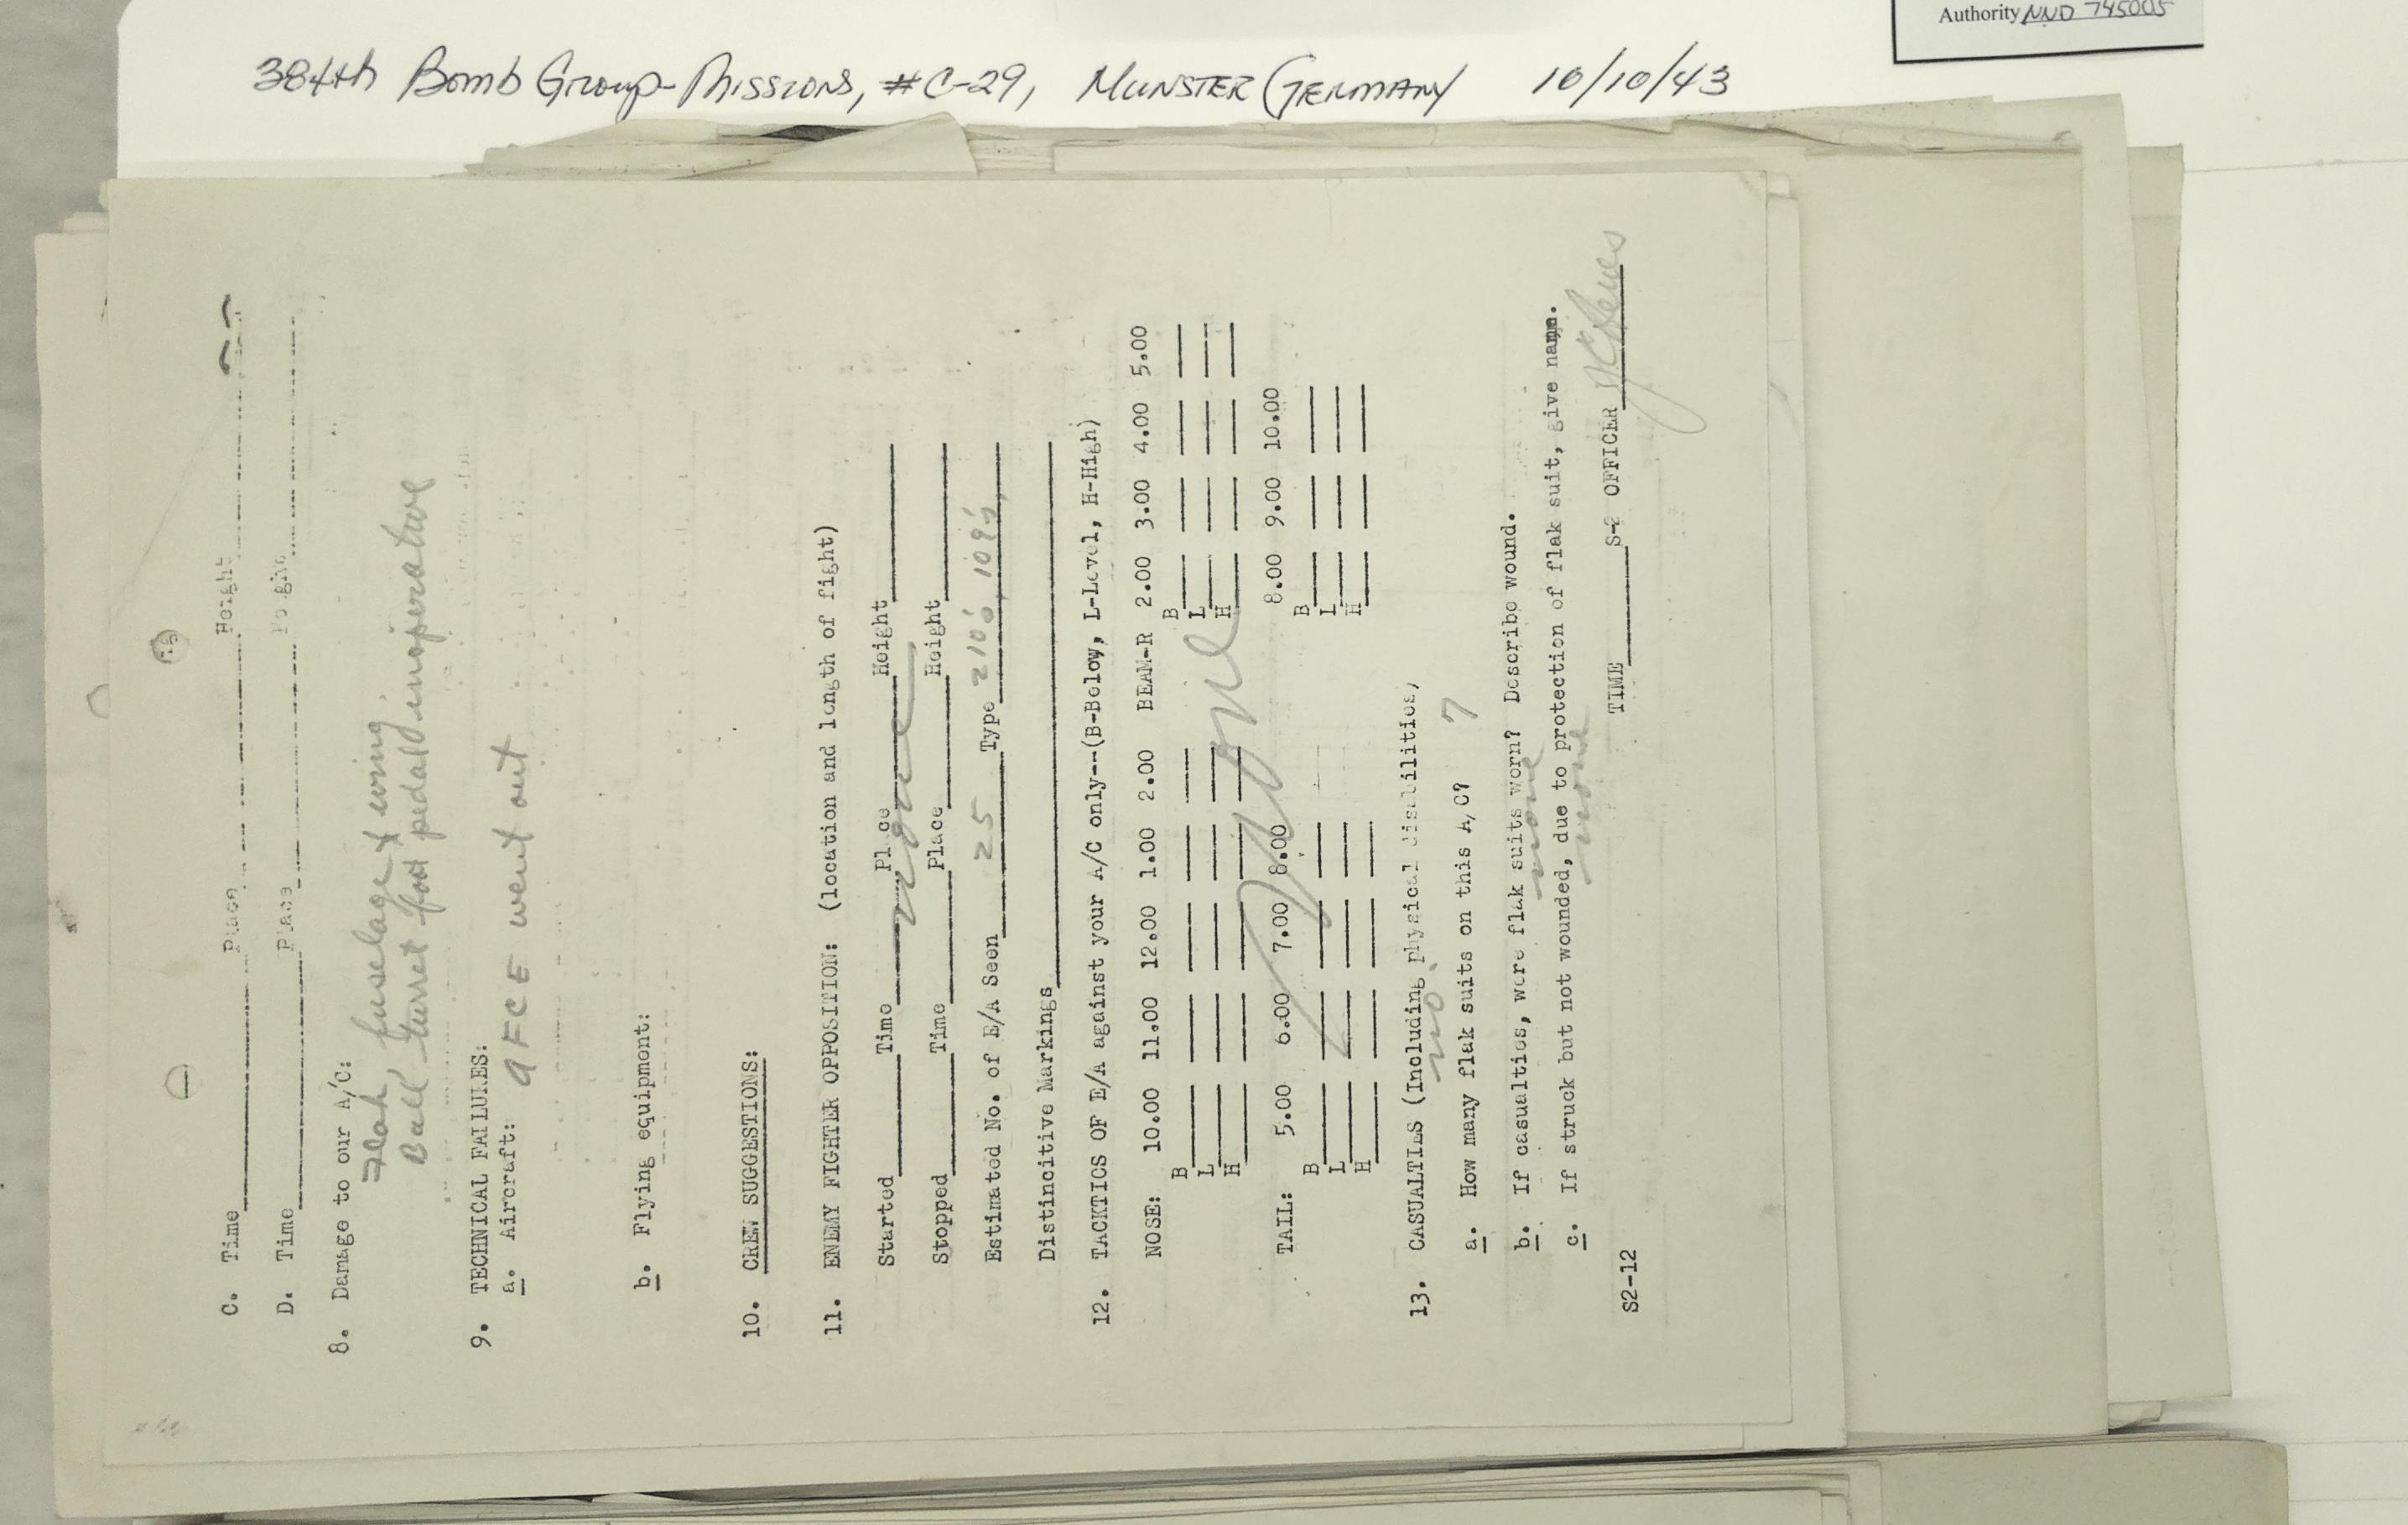 Authority NND 745005
384th Bomb Group-Missions, #C-29, MUNSTER GERMANY 10/10/43
C. Time Place Height
D. Time Place
8. Damage to our A/C:
Flak, fuselage & wing
Ball turret foot pedal inoperative
9. TECHNICAL FAILURES:
a. Aircraft: AFCE went out
b. Flying equipment:
10. CREW SUGGESTIONS:
11. ENEMY FIGHTER OPPOSITION: (location and length of fight)
Started Time Place none Height
Stopped Time Place Height
Estimated No. of E/A Seen 25 Type 210's, 109's
Distincitive Markings
12. TACKTICS OF E/A against your A/C only--(B-Below, L-Level, H-High)
NOSE: 10.00 11.00 12.00 1.00 2.00 BEAM-R 2.00 3.00 4.00 5.00
B B
L L
H H
None
TAIL: 5.00 6.00 7.00 8.00 8.00 9.00 10.00
B B
L L
H H
13. CASUALTIES (Including physical disabilities)
no.
a. How many flak suits on this A/C? 7
b. If casualties, were flak suits worn? Describe wound.
none
c. If struck but not wounded, due to protection of flak suit, give name.
none
TIME S-2 OFFICER
S2-12